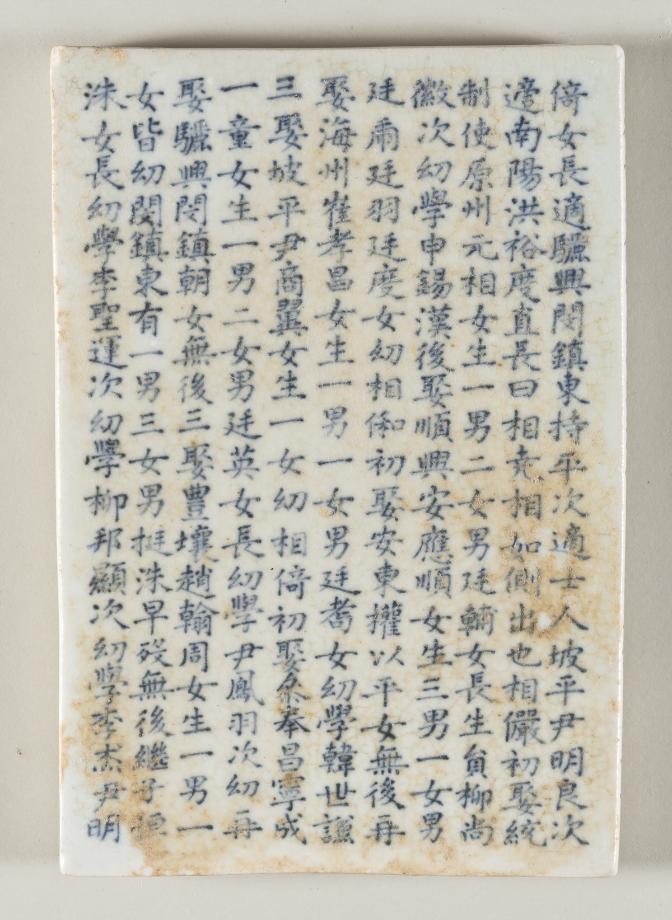 倚女長適驪興閔鎮東持平次適士人坡平尹明良次
適南陽洪裕度直長曰相堯相如側出也相儼初娶統
制使原州元相女生一男二女男廷輔女長生員柳尚
徽次幼學申錫漢後娶順興安應順女生三男一女男
廷爾廷羽廷度女幼相倁初娶安東權以平女無後再
娶海州崔孝昌女生一男一女男廷耇女幼學韓世謙
三娶坡平尹商翼女生一女幼相倚初娶叅奉昌寧成
一童女生一男二女男廷英女長幼學尹鳳羽次幼再
娶驪興閔鎮朝女無後三娶豊壤趙翰周女生一男一
女皆幼閔鎮東有一男三女男挺洙早殀無後繼子恒
洙女長幼學李聖運次幼學柳邦顯次幼學李杰尹明